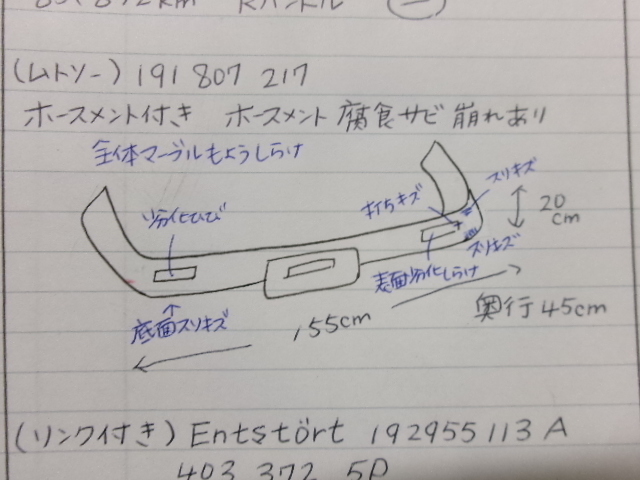 (ムトソー) 191 807 217
ホースメント付き ホースメント 腐食サビ 崩れあり
全体マーブルもようしらけ
スリキズ
打ちキズ
劣化ひび
20cm
スリキズ
表面劣化しらけ
底面スリキズ
155cm
奥行45cm
(リンク付き) Entstört 192955113 A
403 372 5P